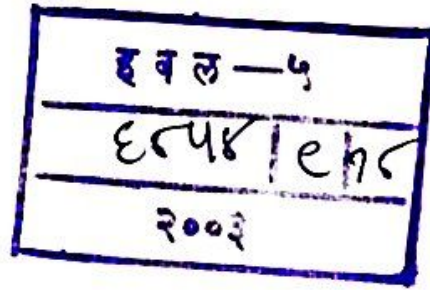 ह व ल — ५
६८५४
२००३